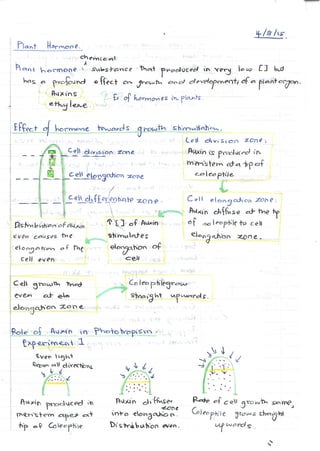 4/8/15
Plant Hormone.
chemical
Plant hormone : substance that produced in very low [ ] but
has a profound effect on growth and development of a plant organ.
Auxins
ethylene
Ex of hormones in plants.
Effect of hormone towards growth stimulation.
Cell division zone
Cell elongation zone
Cell differentiate zone
Cell division zone :
Auxin is produced in
meristem at a tip of
coleoptile
Cell elongation zone :
Auxin diffuse at the tip
of coleoptile to cell
elongation zone.
Distribution of Auxin
even causes the
elongation of the
cell even
↑ [ ] of Auxin
stimulates
elongation of
cell
Cell growth
even at
elongation zone
Coleoptile grow
straight upwards.
Role of Auxin in Phototropism
Experiment 1
Even light
from all directions
Auxin produced in
meristem apex at
tip of Coleoptile
Auxin diffuses
into elongation zone
Distribution even.
Rate of cell growth same,
Coleoptile grows straight
upwards.